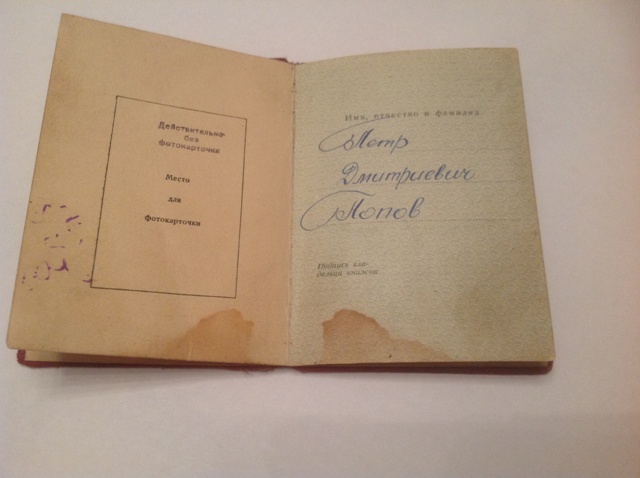 Действительно
без
фотокарточки
Место
для
фотокарточки
Имя, отчество и фамилия
Петр
Дмитриевич
Попов
Подпись вла-
дельца книжки